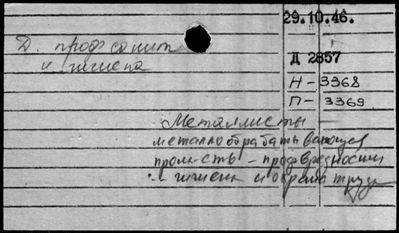 29.10.46.
Д. проф санит
и гигиена
Д 2857
Н - 3368
П - 3369
Металлисты
металлообрабатывающая
пром-сть - профвредности
- гигиена и охрана труда